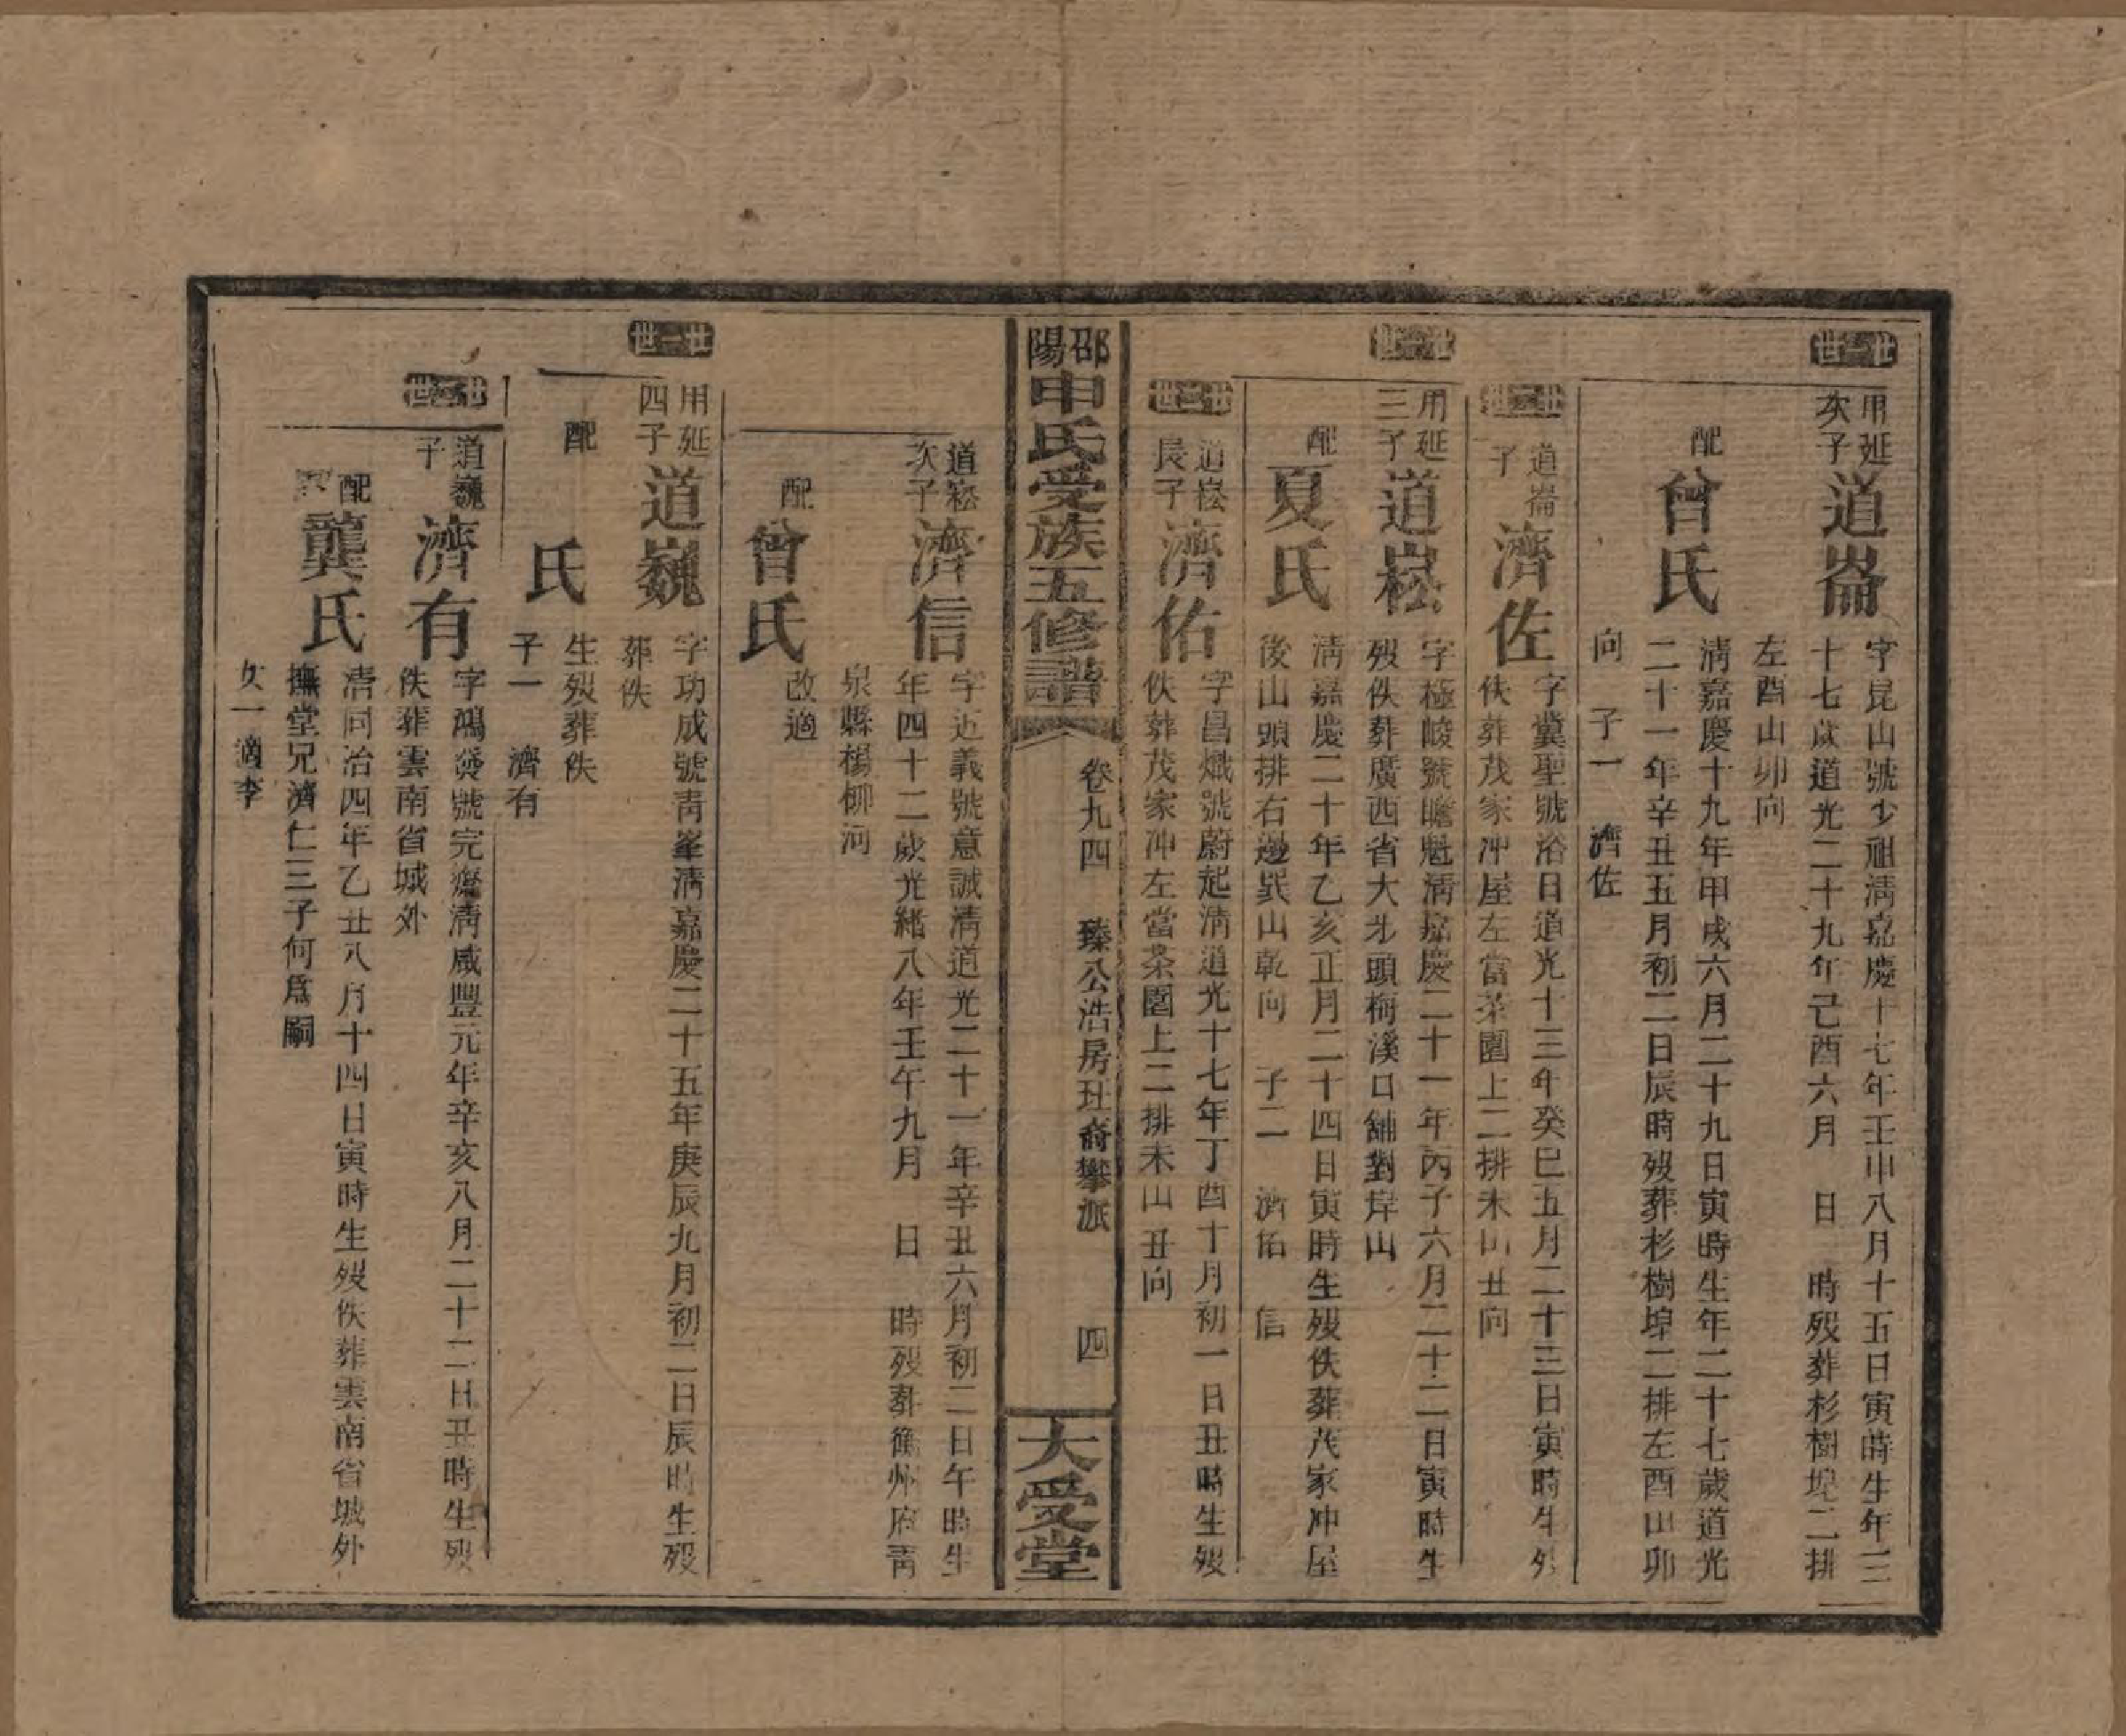 廿二世
用延
次子
道崙
字昆山號少祖淸嘉慶十七年壬申八月十五日寅時生年三
十七歲道光二十九年己酉六月　日　時歿葬杉樹埠二排
左酉山卯向
配
曾氏
淸嘉慶十九年甲戌六月二十九日寅時生年二十七歲道光
二十一年辛丑五月初二日辰時歿葬杉樹埠二排左酉山卯
向　子一　濟佐
廿三世
道崙
子
濟佐
字冀聖號浴日道光十三年癸巳五月二十三日寅時生歿
佚葬茂家冲屋左當茶園上二排未山丑向
廿二世
用延
三子
道崧
字極峻號瞻魁淸嘉慶二十一年丙子六月二十二日寅時生
歿佚葬廣西省大圤頭梅溪口舖對岸山
配
夏氏
淸嘉慶二十年乙亥正月二十四日寅時生歿佚葬茂家冲屋
後山頭排右邊巽山乾向　子二　濟佑　信
廿三世
道崧
長子
濟佑
字昌熾號蔚起淸道光十七年丁酉十月初一日丑時生歿
佚葬茂家冲左當茶園上二排未山丑向
邵陽
申氏受族五修譜
卷九四　臻公浩房珏裔攀派　四
大受堂
道崧
次子
濟信
字近義號意誠淸道光二十一年辛丑六月初二日午時生
年四十二歲光緒八年壬午九月　日　時歿葬衢州府靑
泉縣楊柳河
配
曾氏
改適
廿二世
用延
四子
道巍
字功成號靑峯淸嘉慶二十五年庚辰九月初二日辰時生歿
葬佚
配
氏
生歿葬佚
子一　濟有
廿三世
道巍
子
濟有
字鴻發號完齋淸咸豐元年辛亥八月二十二日丑時生歿
佚葬雲南省城外
配
龔氏
淸同治四年乙丑八月十四日寅時生歿佚葬雲南省城外
撫堂兄濟仁三子何爲嗣
女一　適李